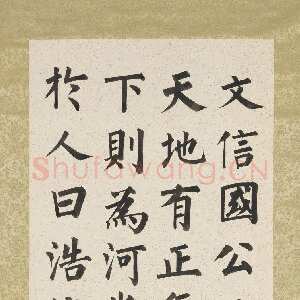 文信國公
天地有正氣
下則為河
於人曰浩
Shufawang.CN